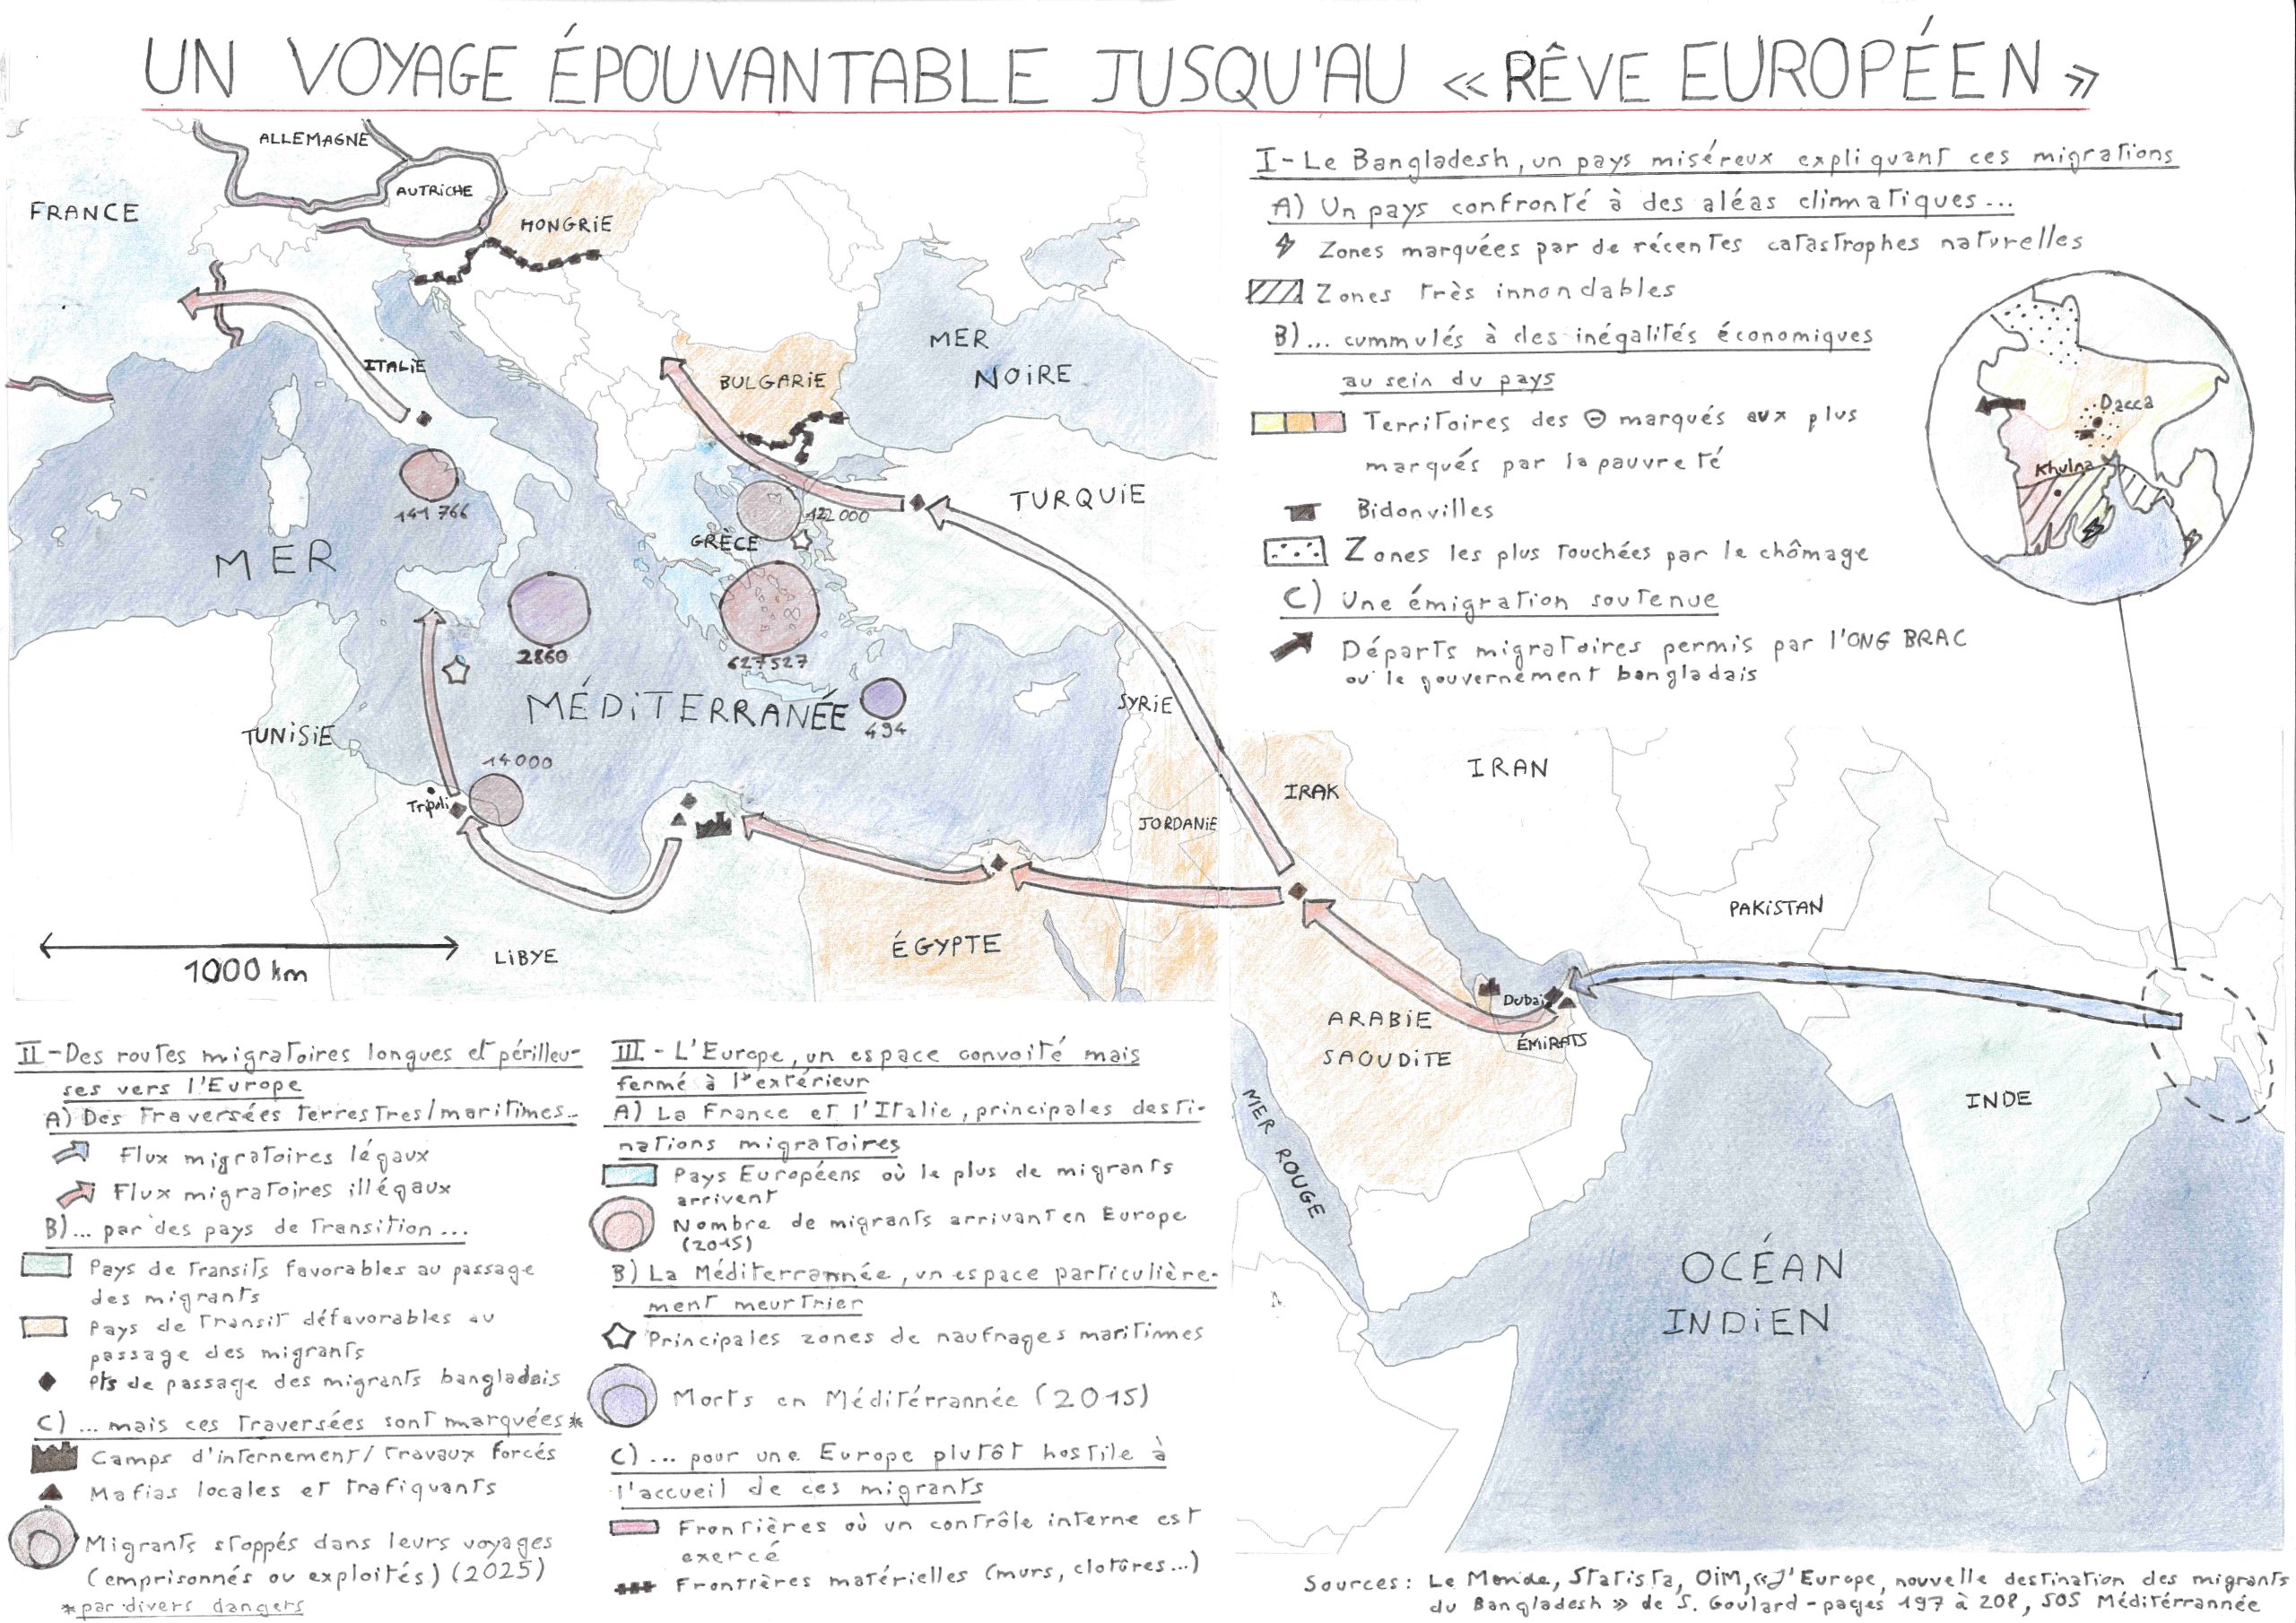 UN VOYAGE ÉPOUVANTABLE JUSQU'AU « RÊVE EUROPÉEN »
ALLEMAGNE
AUTRICHE
FRANCE
HONGRIE
ITALIE
BULGARIE
MER
NOIRE
141 766
122 000
TURQUIE
GRÈCE
MER
2860
627527
MÉDITERRANÉE
494
SYRIE
TUNISIE
14000
Tripoli
JORDANIE
1000 km
LIBYE
ÉGYPTE
I - Le Bangladesh, un pays miséreux expliquant ces migrations
A) Un pays confronté à des aléas climatiques...
Zones marquées par de récentes catastrophes naturelles
Zones très innondables
B)... cummulés à des inégalités économiques
au sein du pays
Territoires des ⊖ marqués aux plus
marqués par la pauvreté
Bidonvilles
Zones les plus touchées par le chômage
C) Une émigration soutenue
Départs migratoires permis par l'ONG BRAC
ou le gouvernement bangladais
Dacca
Khulna
IRAN
IRAK
PAKISTAN
Dubai
ARABIE
SAOUDITE
ÉMIRATS
INDE
MER ROUGE
OCÉAN
INDIEN
II - Des routes migratoires longues et périlleu-
ses vers l'Europe
A) Des Traversées terrestres/maritimes...
Flux migratoires légaux
Flux migratoires illégaux
B)... par des pays de Transition...
Pays de Transits favorables au passage
des migrants
Pays de Transit défavorables au
passage des migrants
Pts de passage des migrants bangladais
C) ... mais ces Traversées sont marquées*
Camps d'internement/Travaux forcés
Mafias locales et trafiquants
Migrants stoppés dans leurs voyages
(emprisonnés ou exploités) (2025)
*par divers dangers
III - L'Europe, un espace convoité mais
fermé à l'extérieur
A) La France et l'Italie, principales desti-
nations migratoires
Pays Européens où le plus de migrants
arrivent
Nombre de migrants arrivant en Europe
(2015)
B) La Méditerrannée, un espace particulière-
ment meurtrier
Principales zones de naufrages maritimes
Morts en Méditérrannée (2015)
C) ... pour une Europe plutôt hostile à
l'accueil de ces migrants
Frontières où un contrôle interne est
exercé
Frontières matérielles (murs, clotûres...)
Sources : Le Monde, Statista, OIM, «J'Europe, nouvelle destination des migrants
du Bangladesh » de S. Goulard - pages 197 à 208, SOS Méditérrannée